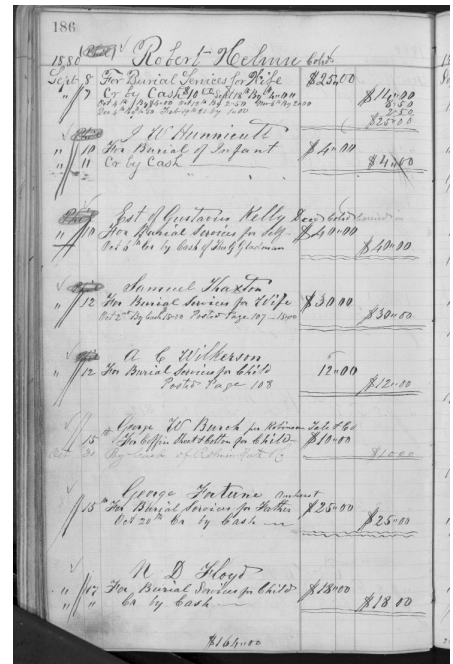 186
1880 Robert Helms Cold
Sept 8 For Burial Services for Wife $25,00
" 7 Cr by Cash $10 Sept 18th By $4,00 $14,00
$25,00
J W Hunnicutt
" 10 For Burial of Infant $4,00
" 11 Cr by Cash $4,00
Est of Gustavus Kelly Decd Cold
" 10 For Burial Services for Self $40,00
Oct 5th Cr by Cash of Thos G Gladman $40,00
Samuel Thaxton
" 12 For Burial Services for Wife $30 00
Oct 2nd By Cash 15-00 Posted Page 107 - 15,00 $30,00
A C Wilkerson
" 12 For Burial Services for Child 12,00
Posted Page 108 $12,00
George W Burch for Robinson Tate & Co
" 15th For Coffin for Child $10,00
Oct 20 By Cash of Robinson Tate & Co $10 00
George Fortune Amherst
" 15th For Burial Services for Father $25,00
Oct 20th Cr by Cash $25,00
N D Floyd
" 17 For Burial Services for Child $18,00
" " Cr by Cash $18 00
$164,00